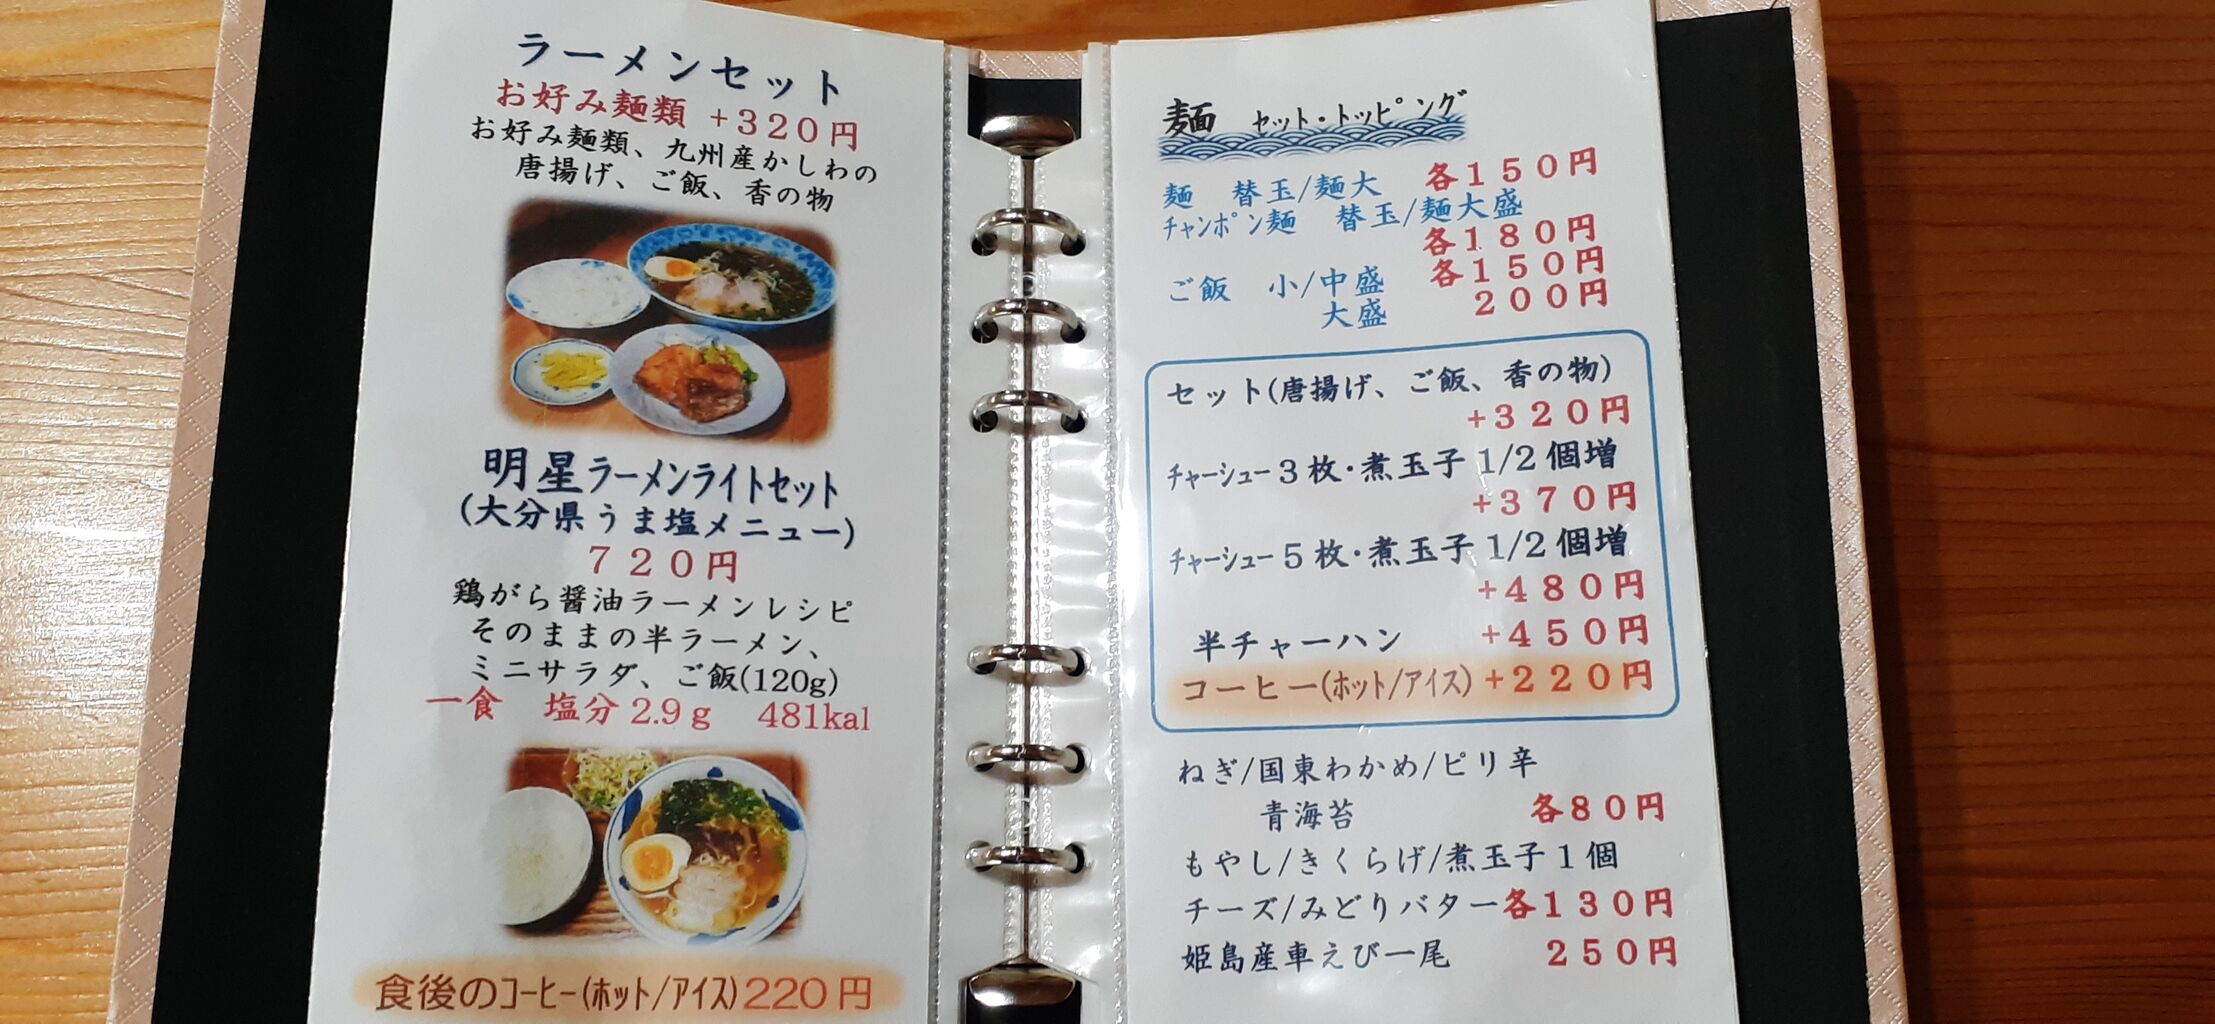 ラーメンセット
お好み麺類 +320円
お好み麺類、九州産かしわの
唐揚げ、ご飯、香の物
明星ラーメンライトセット
(大分県うま塩メニュー)
720円
鶏がら醤油ラーメンレシピ
そのままの半ラーメン、
ミニサラダ、ご飯(120g)
一食 塩分2.9g 481kal
食後のコーヒー(ホット/アイス)220円
麺 セット・トッピング
麺 替玉/麺大 各150円
チャンポン麺 替玉/麺大盛
各180円
ご飯 小/中盛 各150円
大盛 200円
セット(唐揚げ、ご飯、香の物)
+320円
チャーシュー3枚・煮玉子1/2個増
+370円
チャーシュー5枚・煮玉子1/2個増
+480円
半チャーハン +450円
コーヒー(ホット/アイス) +220円
ねぎ/国東わかめ/ピリ辛
青海苔 各80円
もやし/きくらげ/煮玉子1個
チーズ/みどりバター各130円
姫島産車えび一尾 250円